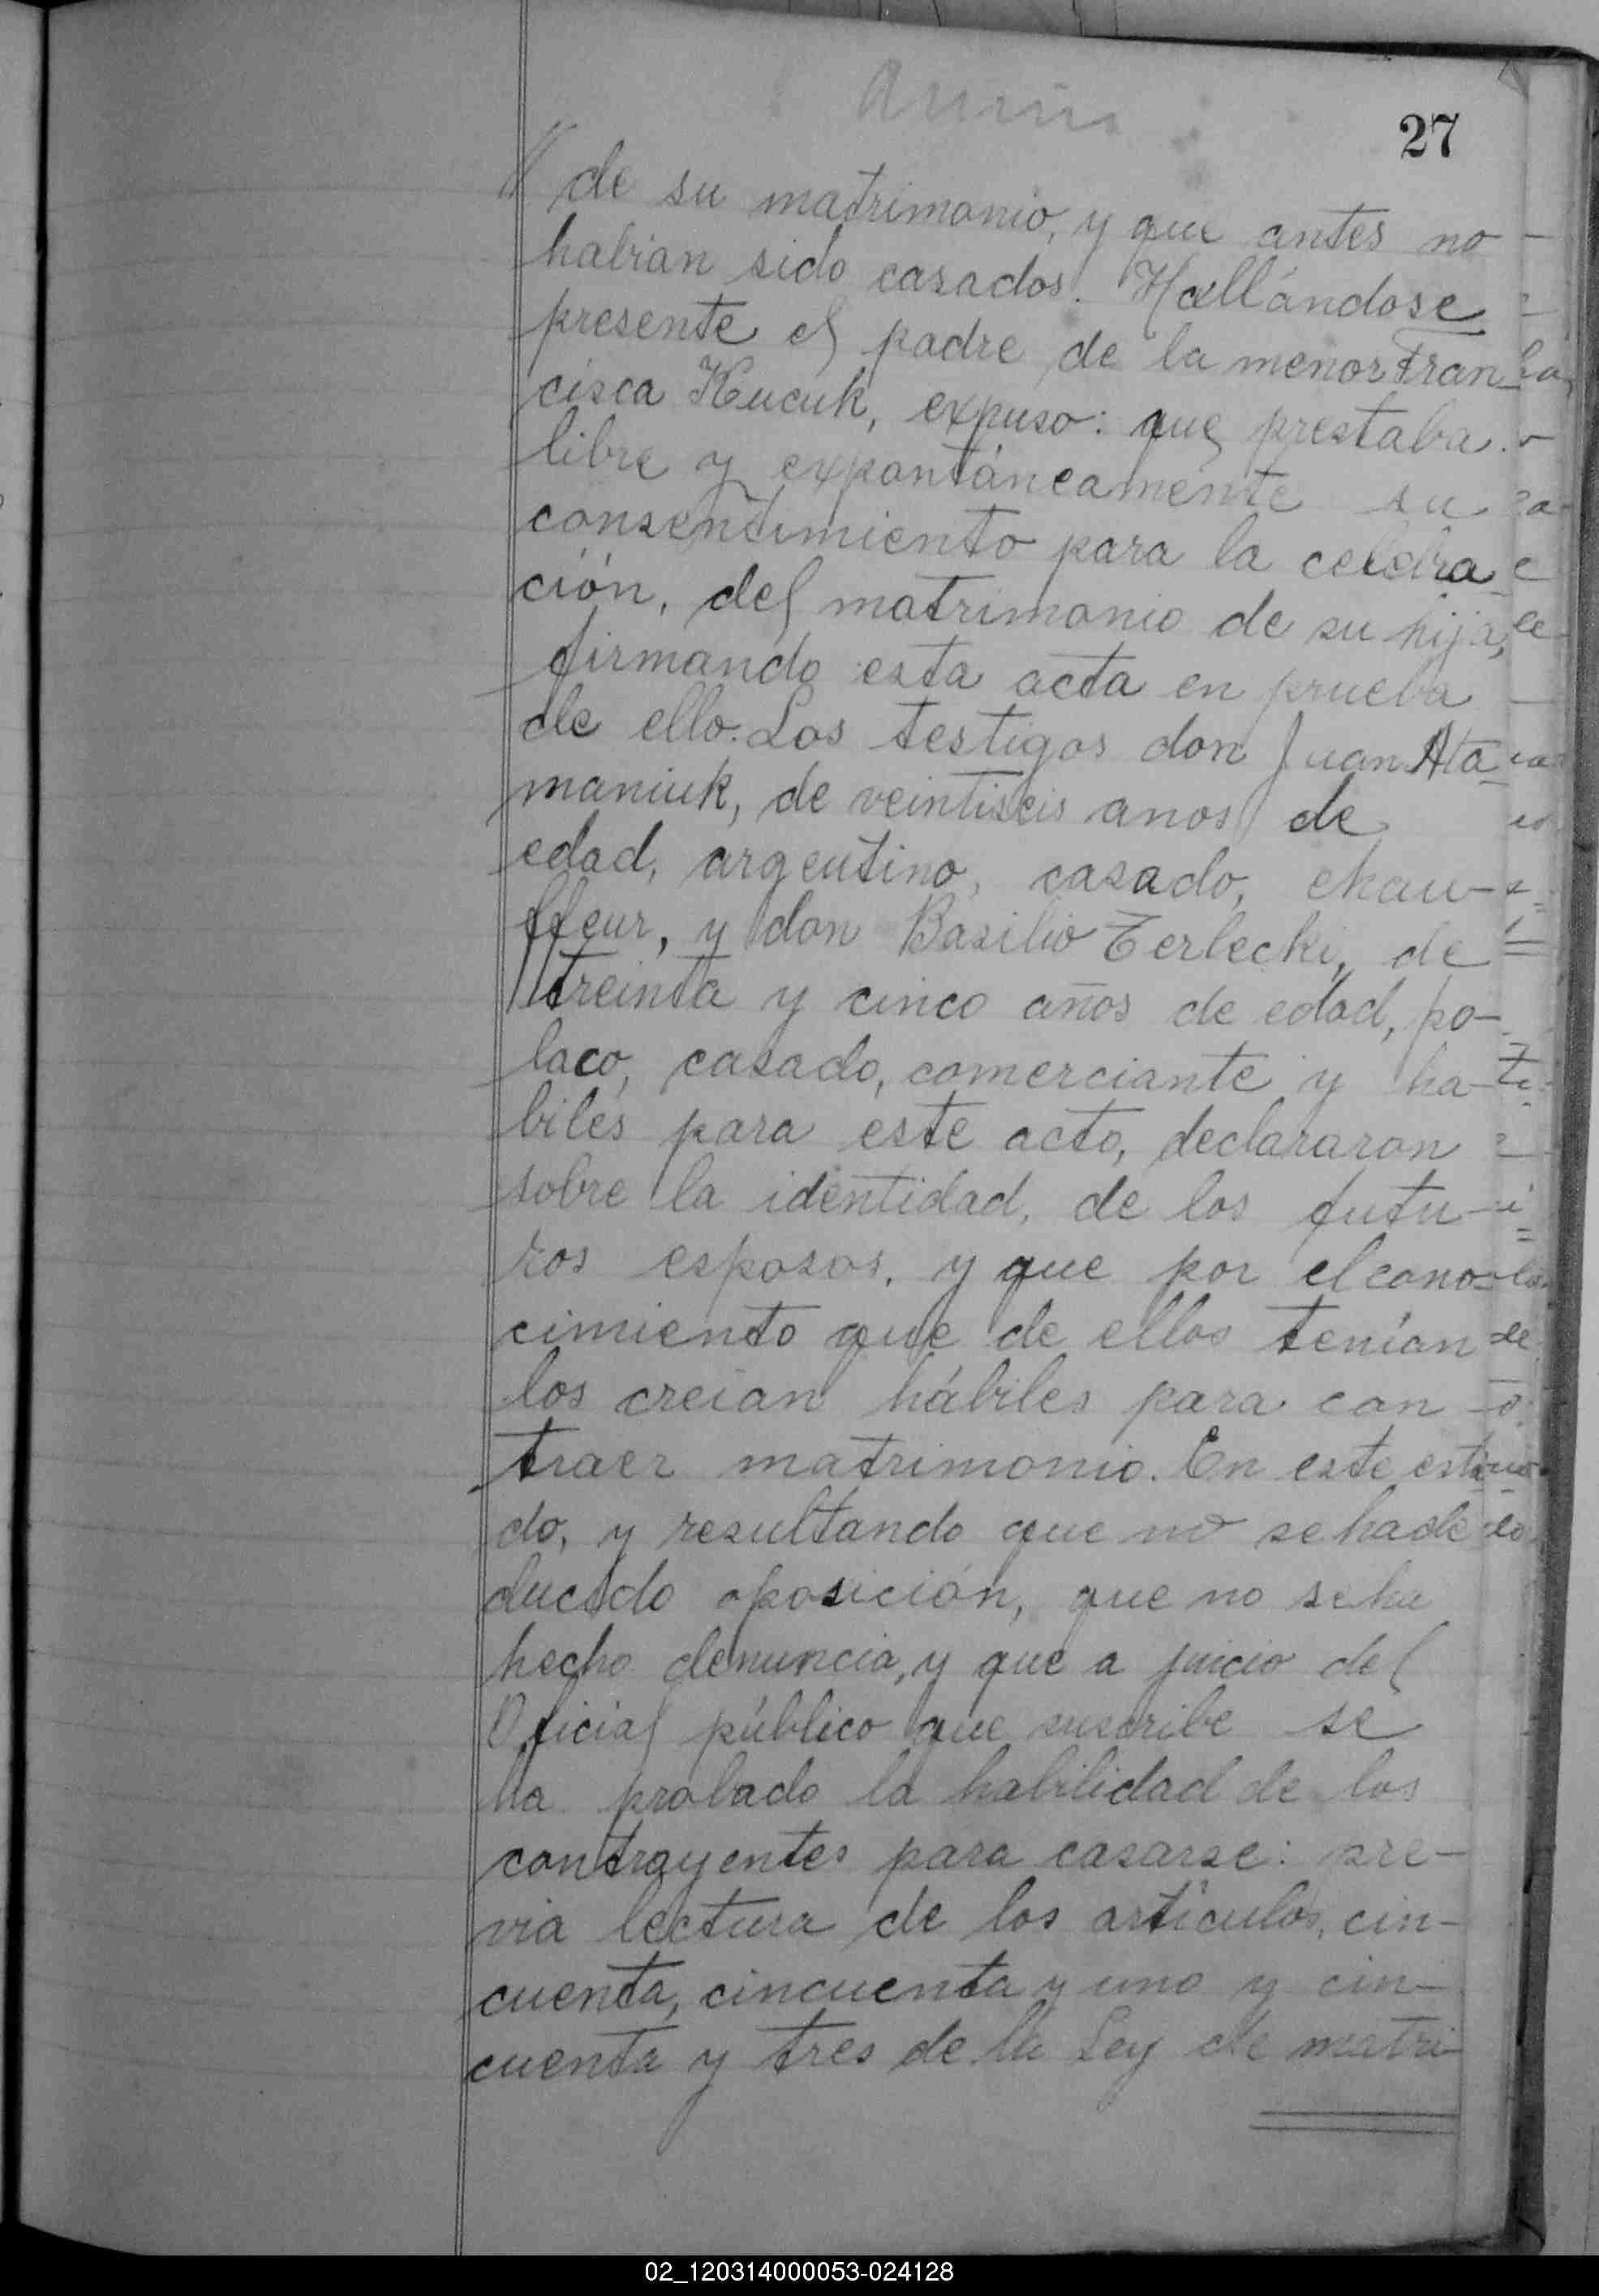 27
// de su matrimonio, y que antes no
habian sido casados. Hallándose
presente el padre de la menor Fran-
cisca Kucuk, expuso: que prestaba
libre y expontáneamente su
consentimiento para la celebra-
ción, del matrimonio de su hija,
firmando esta acta en prueba
de ello. Los testigos don Juan Ata-
maniuk, de veintiseis anos de
edad, argentino, casado, chau-
ffeur, y don Basilio Terlecki, de
treinta y cinco años de edad, po-
laco, casado, comerciante y ha-
biles para este acto, declararon
sobre la identidad, de los futu-
ros esposos, y que por el cono-
cimiento que de ellos tenían
los creian hábiles para con
traer matrimonio. En este esta-
do, y resultando que no se ha de
ducido oposición, que no se ha
hecho denuncia, y que a juicio del
Oficial público que suscribe se
ha probado la habilidad de los
contrayentes para casarse: pre-
via lectura de los artículos, cin-
cuenta, cincuenta y uno y cin-
cuenta y tres de la Ley de matri-
02_120314000053-024128